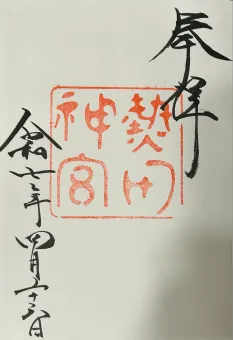 奉拝
熱田
神宮
令和七年四月